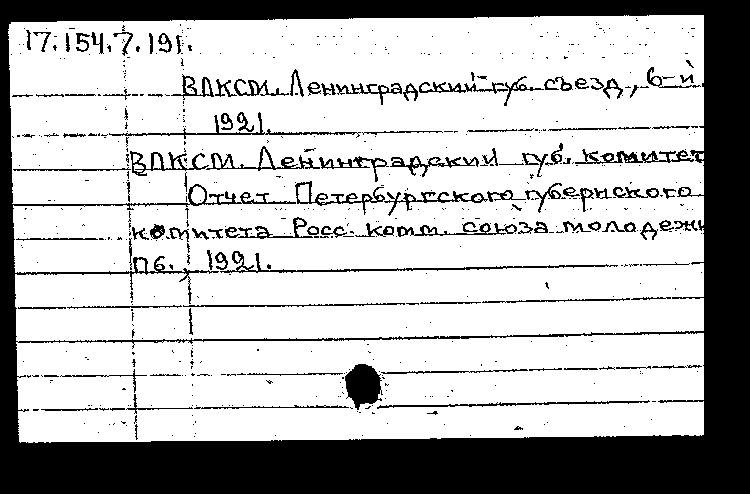 17.154.7.191.
ВЛКСМ. Ленинградский губ. съезд, 6-й.
1921.
ВЛКСМ. Ленинградский губ. комитет
Отчет Петербургского губернского
комитета Росс. комм. союза молодежи
Пб., 1921.